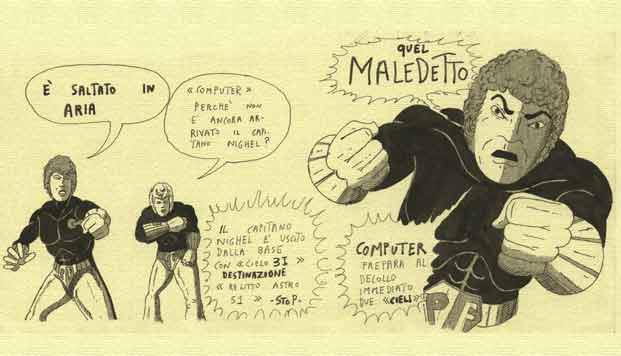 È SALTATO IN
ARIA
«COMPUTER»
PERCHÈ NON
E' ANCORA AR-
RIVATO IL CAPI-
TANO NIGHEL?
IL CAPITANO
NIGHEL E' USCITO
DALLA BASE
CON «CIELO 3I»
DESTINAZIONE
«RELITTO ASTRO
51» -STOP-
QUEL
MALEDETTO
COMPUTER
PREPARA AL
DECOLLO
IMMEDIATO
DUE «CIELI»